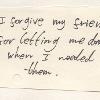 I forgive my friend
for letting me down
when I needed
them.